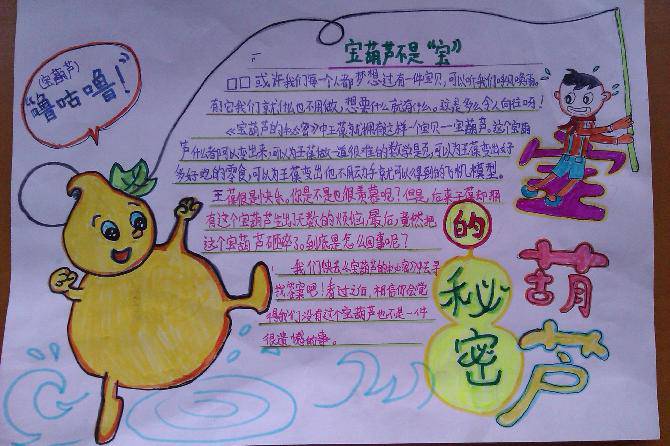 (宝葫芦)
"噜咕噜!"
宝葫芦不是"宝"
□□或许我们每个人都梦想过有一件宝贝,可以听我们呼唤使。
有它我们就什么也不用做,想要什么就有什么。这是多么令人向往呀!
《宝葫芦的秘密》中王葆就拥有这样一个宝贝一宝葫芦。这个宝葫
芦什么都可以变出来,可以为王葆做一道很难的数学题,可以为王葆变出好
多好吃的零食,可以为王葆出他不用动手就可以得到的飞机模型。
王葆很是快乐。你是不是也很羡慕呢?但是,后来王葆却拥
有这个宝葫芦生出了无数的烦恼,最后,竟然把
这个宝葫芦砸碎了。到底是怎么回事呢?
我们快去《宝葫芦的秘密》中去寻
找答案吧!看过之后,相信你会觉
得我们没有这个宝葫芦也不是一件
很遗憾的事。
宝
葫
芦
的
秘
密